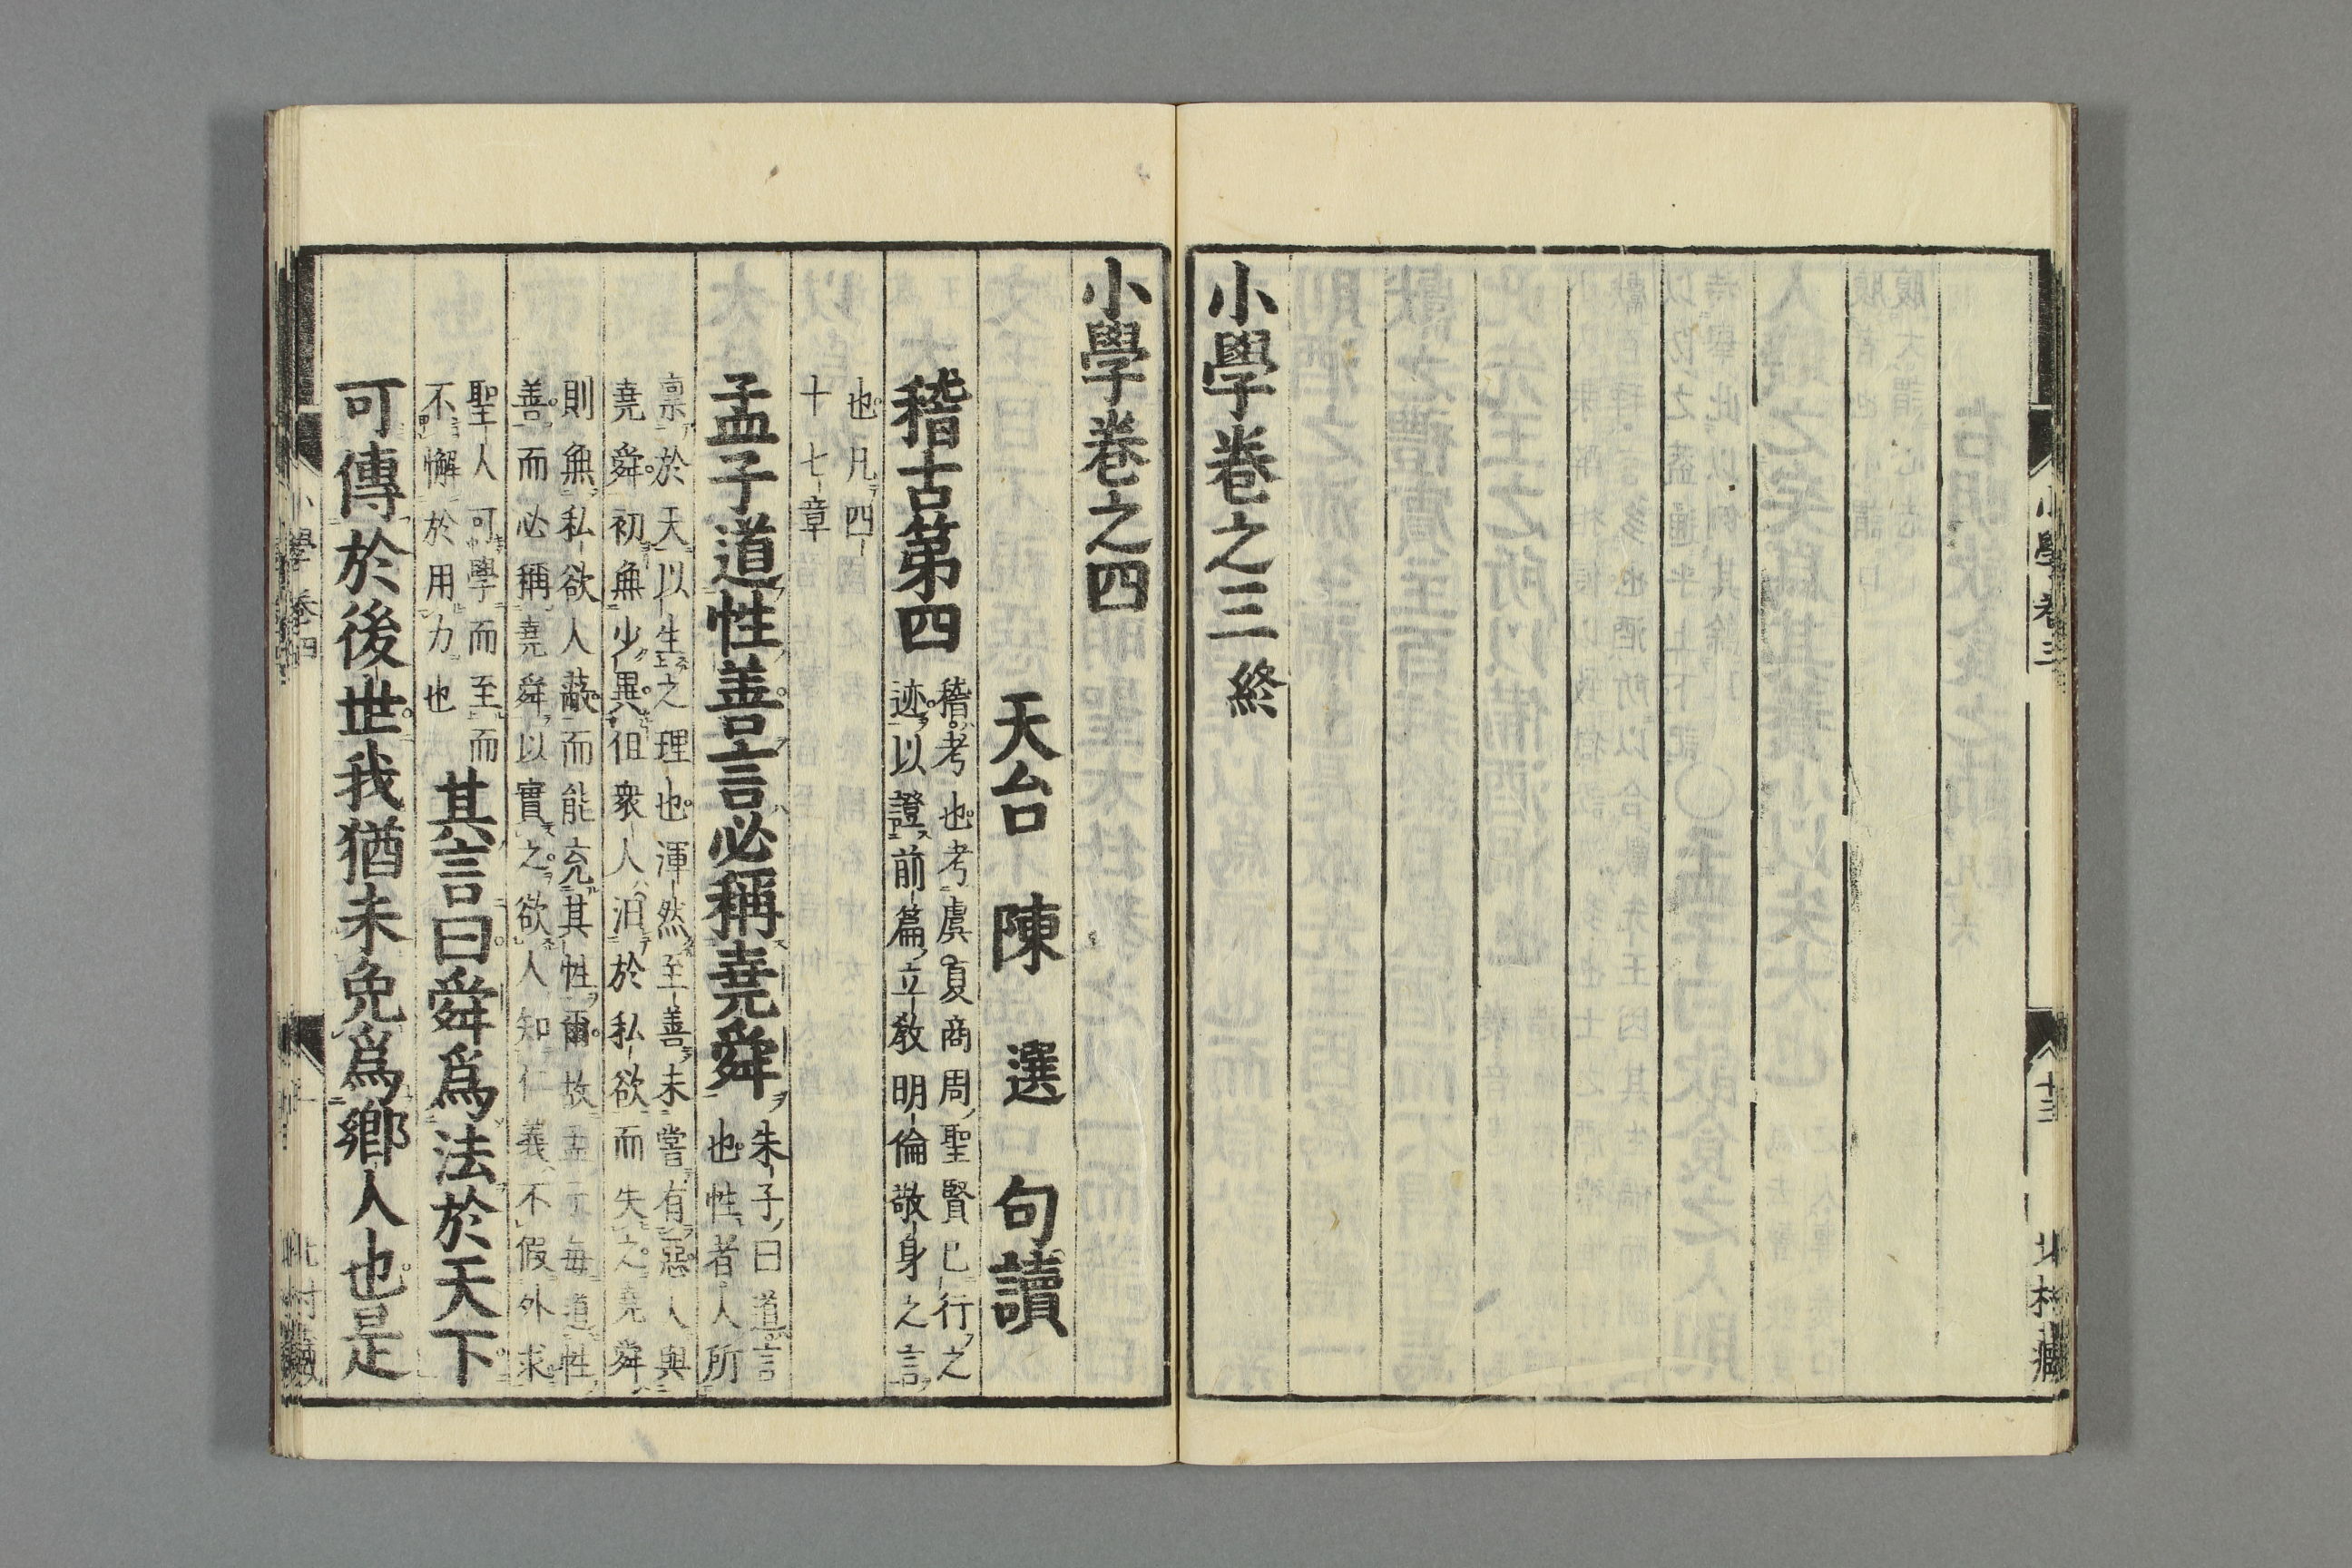 小學卷三
十三
北村藏
小學卷之三終
小學卷之四
天台 陳 選 句讀
稽古第四
稽考也考虞夏商周聖賢已行之
迹以證前篇立敎明倫敬身之言
也凡四
十七章
孟子道性善言必稱堯舜
朱子曰道言
也性者人所
禀於天以生之理也渾然至善未嘗有惡人與
堯舜初無少異但衆人汨於私欲而失之堯舜
則無私欲人蔽而能充其性爾故孟子每道性
善而必稱堯舜以實之欲人知仁義不假外求
聖人可學而至而
不懈於用力也
其言曰舜爲法於天下
可傳於後世我猶未免爲鄕人也是
小學卷四
北村藏